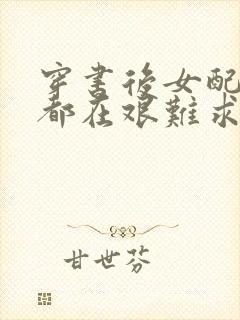 穿书后女配
都在艰难求
甘世芬